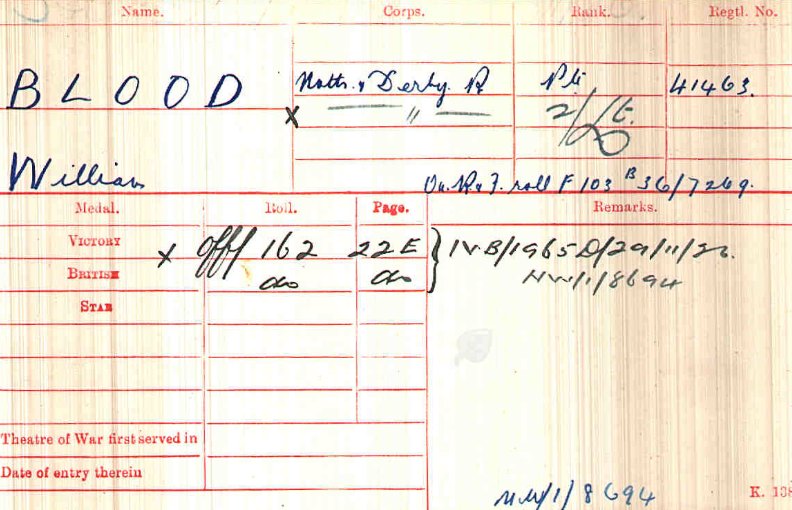 Name. Corps. Rank. Regtl. No.
BLOOD Notts. & Derby. R Pte 41463.
x — " — 2/Lt.
William On. R. & F. roll F 103 B 36/7269.
Medal. Roll. Page. Remarks.
VICTORY x Off/162 22E } IVB/1965D/29/11/26.
BRITISH do do NW/1/8694
STAR
Theatre of War first served in
Date of entry therein
NW/1/8694 K. 138